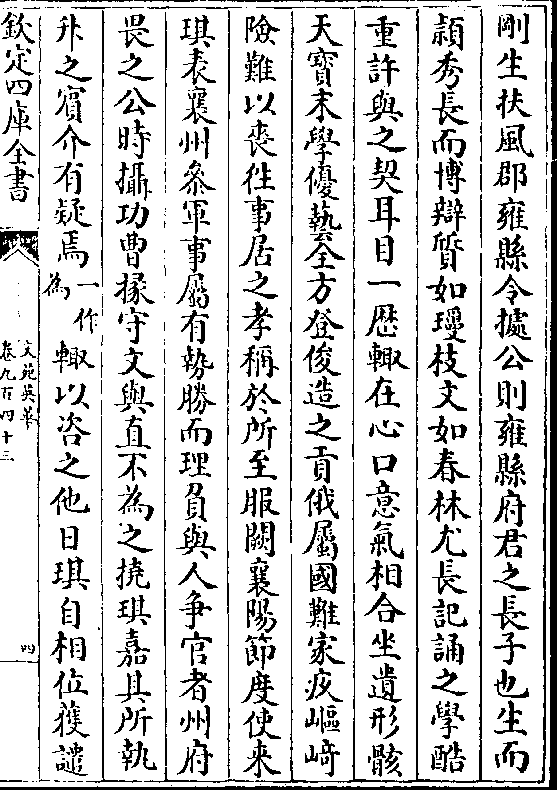 剛生扶風郡雍縣令㩀公則雍縣府君之長子也生而
頴秀長而博辯質如瓊枝文如春林尤長記誦之學酷
重許與之契耳目一歴輙在心口意氣相合坐遺形骸
天寳末學優藝全方登俊造之貢俄屬國難家疚嶇﨑
險難以喪徃事居之孝稱於所至服闋襄陽節度使来
瑱表襄州叅軍事屬有勢勝而理負與人争官者州府
畏之公時攝功曹掾守文與直不為之撓瑱嘉其所執
升之賓介有疑焉一作為輙以咨之他日瑱自相位獲譴
欽定四庫全書
文苑英華
卷九百四十三
四